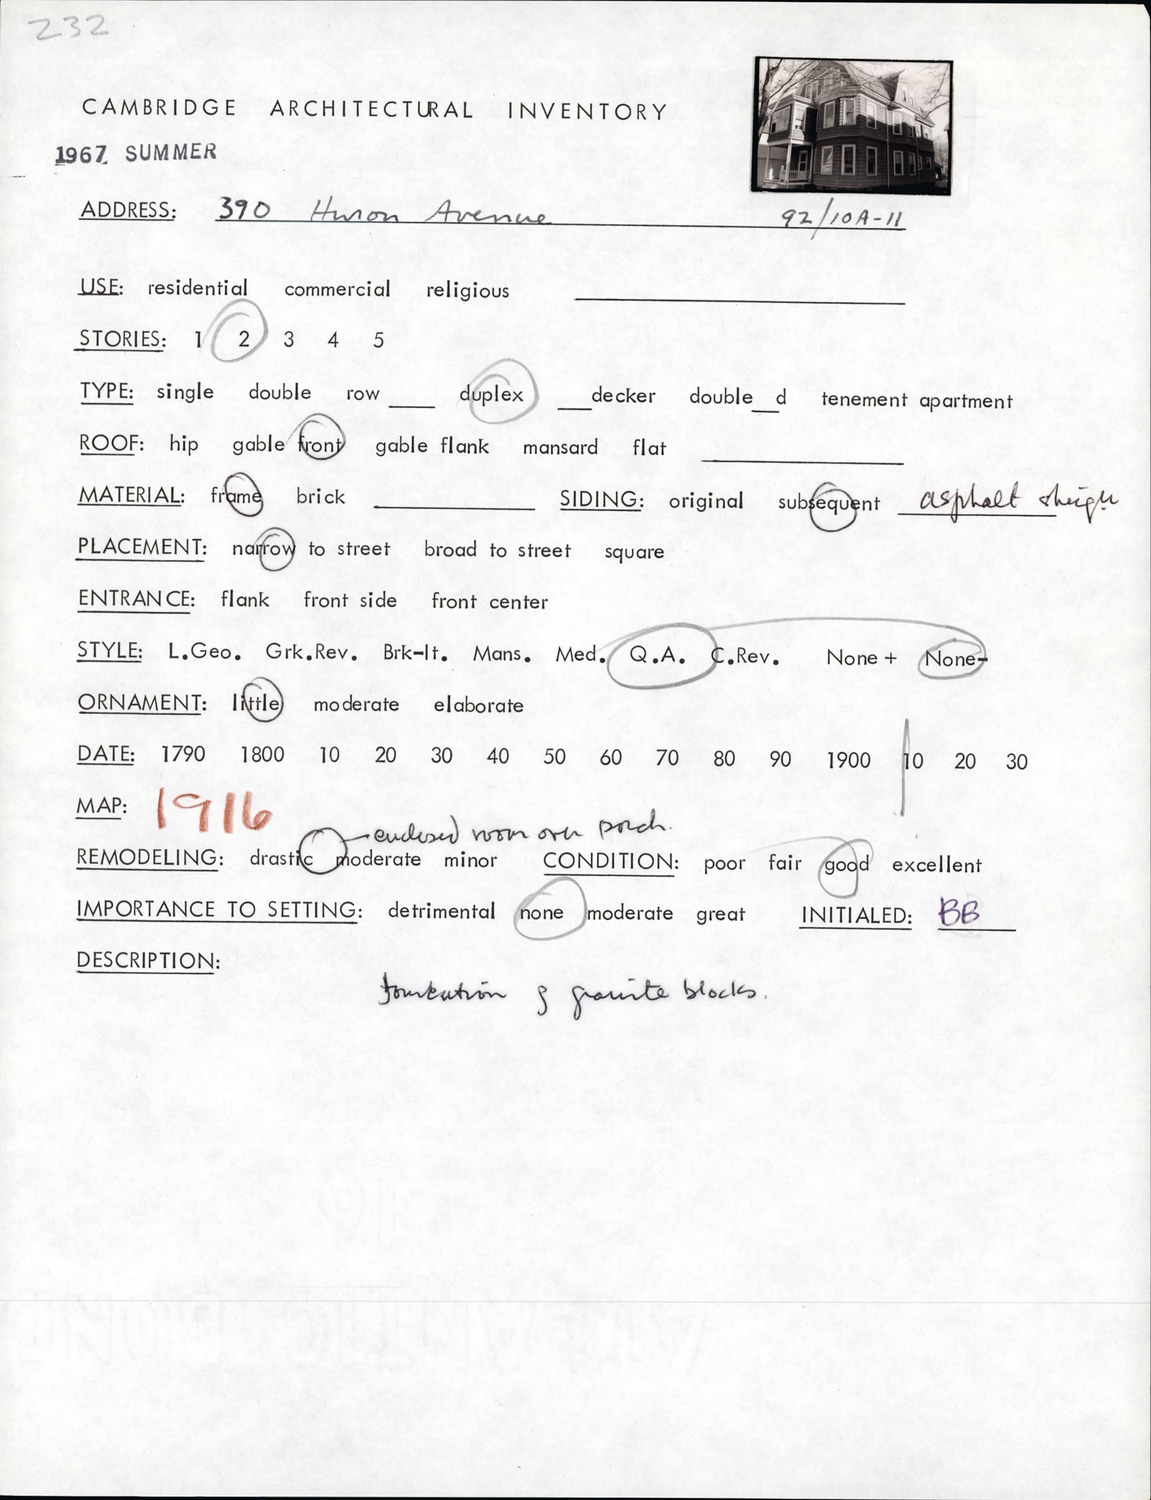 232
CAMBRIDGE ARCHITECTURAL INVENTORY
1967 SUMMER
ADDRESS: 390 Huron Avenue 92/10A-11
USE: residential commercial religious
STORIES: 1 2 3 4 5
TYPE: single double row ___ duplex ___decker double__d tenement apartment
ROOF: hip gable front gable flank mansard flat
MATERIAL: frame brick SIDING: original subsequent asphalt shingle
PLACEMENT: narrow to street broad to street square
ENTRANCE: flank front side front center
STYLE: L.Geo. Grk.Rev. Brk-It. Mans. Med. Q.A. C.Rev. None + None-
ORNAMENT: little moderate elaborate
DATE: 1790 1800 10 20 30 40 50 60 70 80 90 1900 10 20 30
MAP: 1916
enclosed room over porch.
REMODELING: drastic moderate minor CONDITION: poor fair good excellent
IMPORTANCE TO SETTING: detrimental none moderate great INITIALED: BB
DESCRIPTION:
foundation of granite blocks.